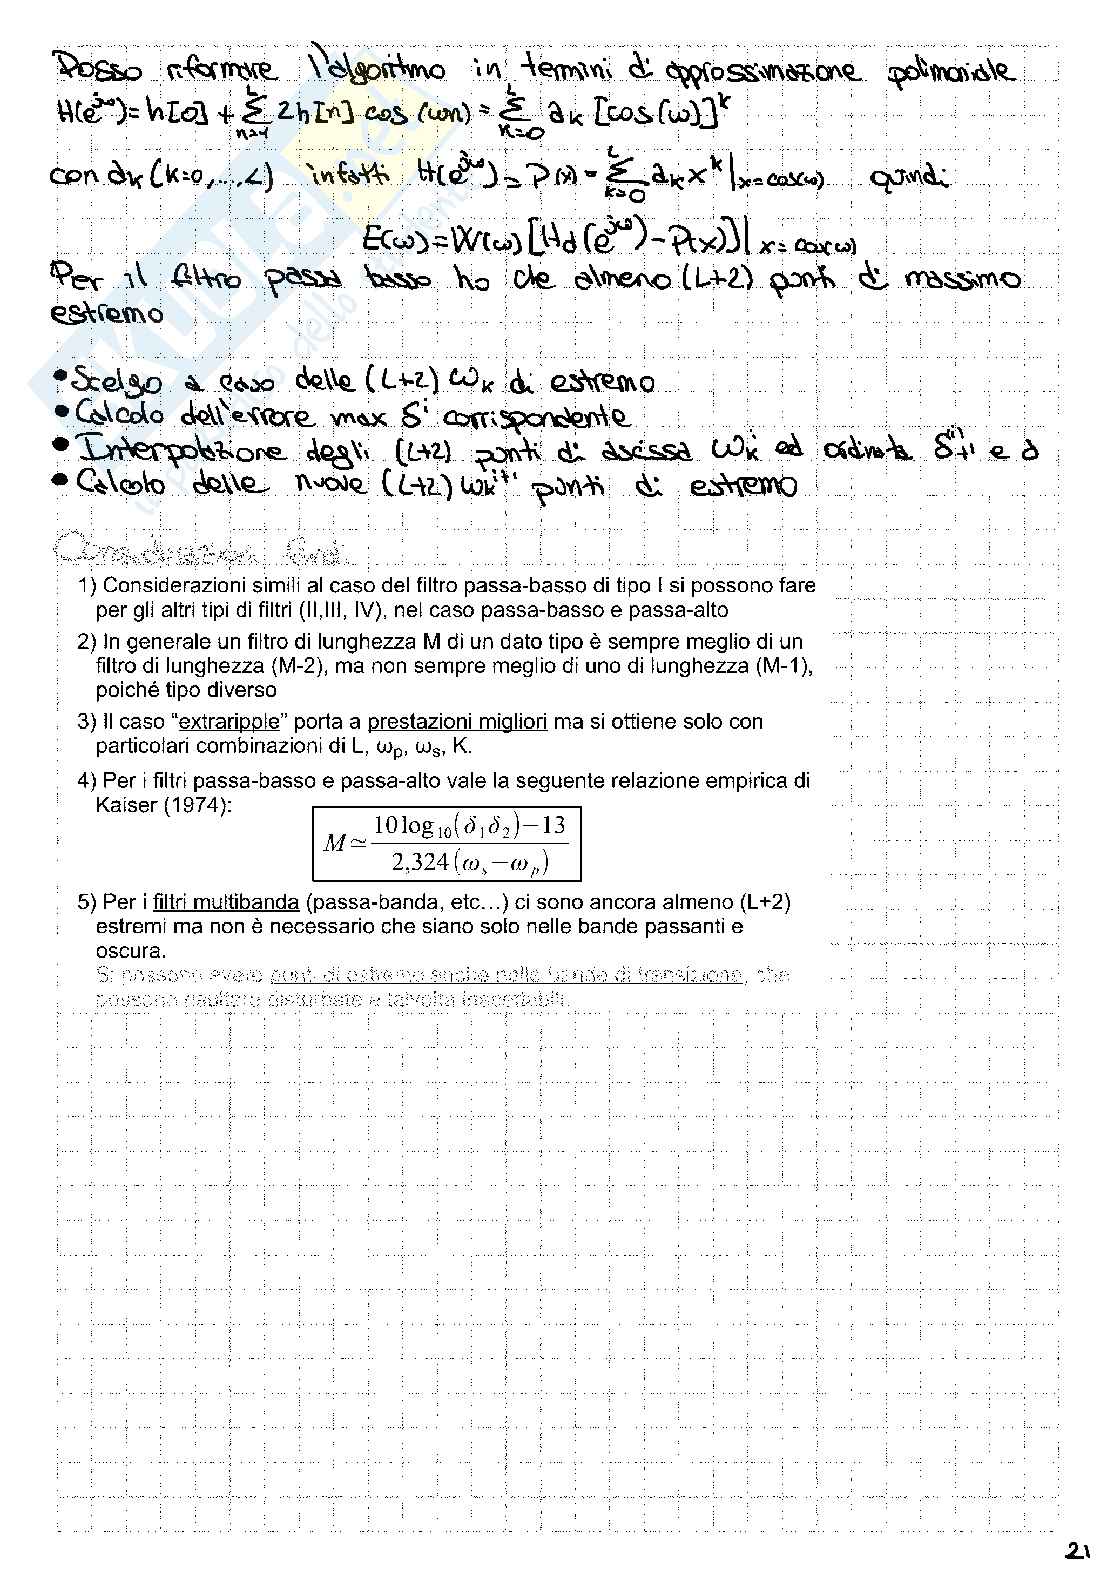 Posso riformare l'algoritmo in termini di approssimazione polinomiale
H(e^{jω}) = h[0] + Σ_{n=1}^{L} 2h[n] cos(ωn) = Σ_{k=0}^{L} a_k [cos(ω)]^k
con a_k (k=0,...,L) infatti H(e^{jω}) = P(x) = Σ_{k=0}^{L} a_k x^k |_{x=cos(ω)} quindi
E(ω) = W(ω) [H_d(e^{jω}) - P(x)] |_{x=cos(ω)}
Per il filtro passa basso ho che almeno (L+2) punti di massimo
estremo
• Scelgo a caso delle (L+2) ω_k di estremo
• Calcolo dell'errore max δ^i corrispondente
• Interpolazione degli (L+2) punti di ascissa ω_k^i ed ordinata
• Calcolo delle nuove (L+2) ω_k^{i+1} punti di estremo
Considerazioni finali
1) Considerazioni simili al caso del filtro passa-basso di tipo I si possono fare
per gli altri tipi di filtri (II,III, IV), nel caso passa-basso e passa-alto
2) In generale un filtro di lunghezza M di un dato tipo è sempre meglio di un
filtro di lunghezza (M-2), ma non sempre meglio di uno di lunghezza (M-1),
poiché tipo diverso
3) Il caso “extraripple” porta a prestazioni migliori ma si ottiene solo con
particolari combinazioni di L, ω_p, ω_s, K.
4) Per i filtri passa-basso e passa-alto vale la seguente relazione empirica di
Kaiser (1974):
M ≃ (10 log_{10}(δ_1 δ_2) − 13) / (2,324 (ω_s − ω_p))
5) Per i filtri multibanda (passa-banda, etc…) ci sono ancora almeno (L+2)
estremi ma non è necessario che siano solo nelle bande passanti e
oscura.
Si possono avere punti di estremo anche nelle bande di transizione, che
possono risultare disturbate e talvolta inaccettabili.
21